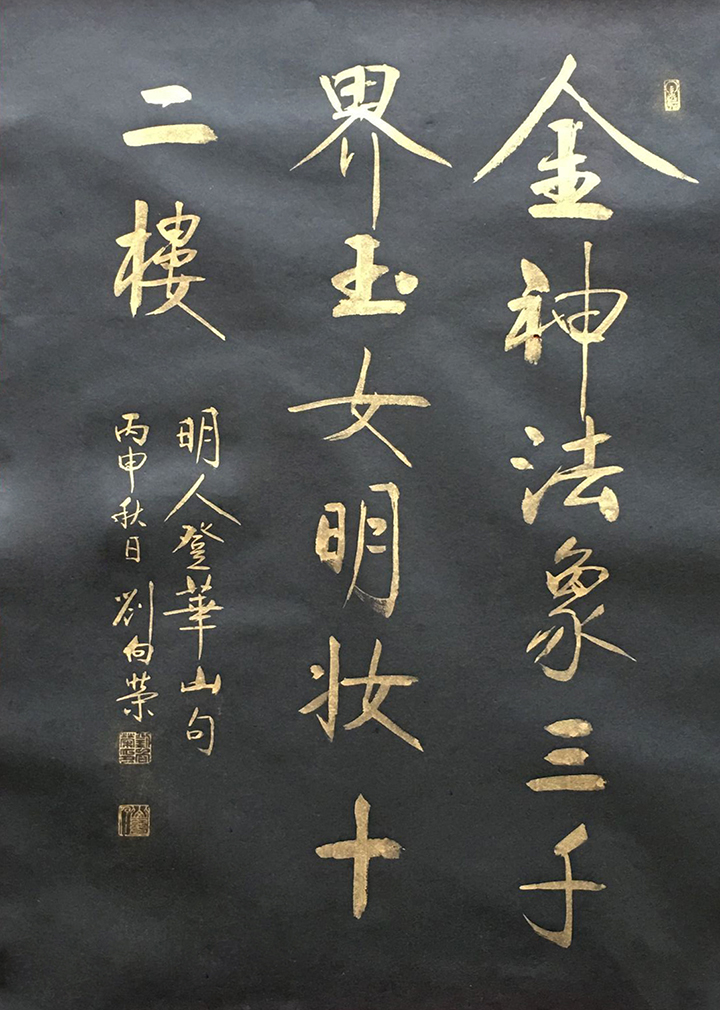 金神法象三千
界玉女明妆十
二樓
明人登華山句
丙申秋日劉向榮